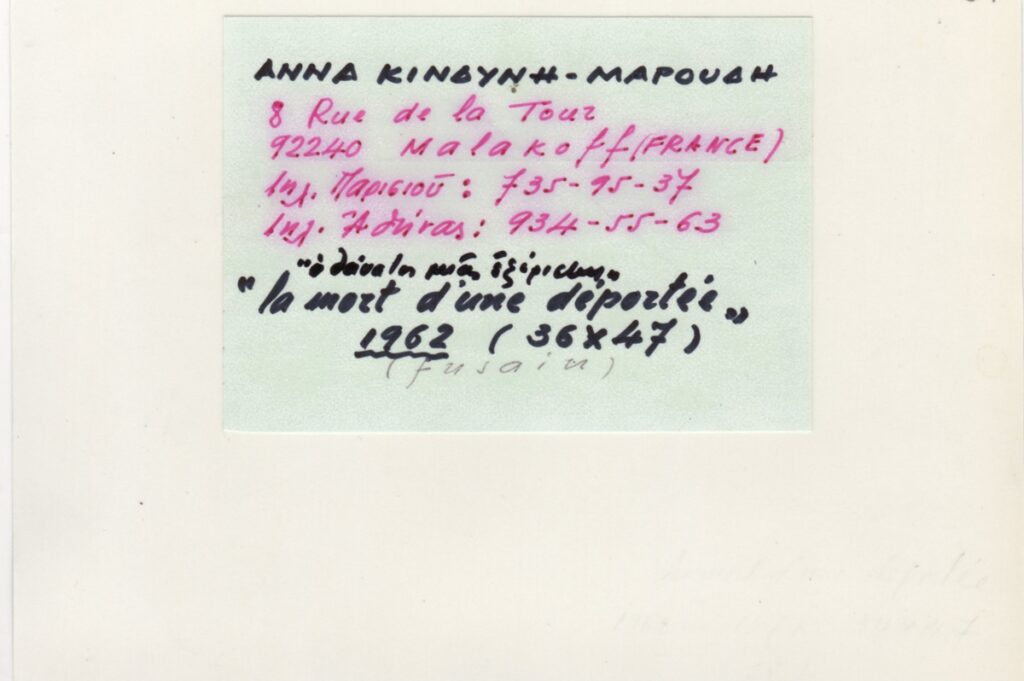 ΑΝΝΑ ΚΙΝΔΥΝΗ-ΜΑΡΟΥΔΗ
8 Rue de la Tour
92240 Malakoff (FRANCE)
τηλ. Παρισιοῦ: 735-95-37
τηλ. Ἀθήνας: 934-55-63
"ὁ θάνατος μιᾶς
"la mort d'une déportée"
1962 (36X47)
(fusain)